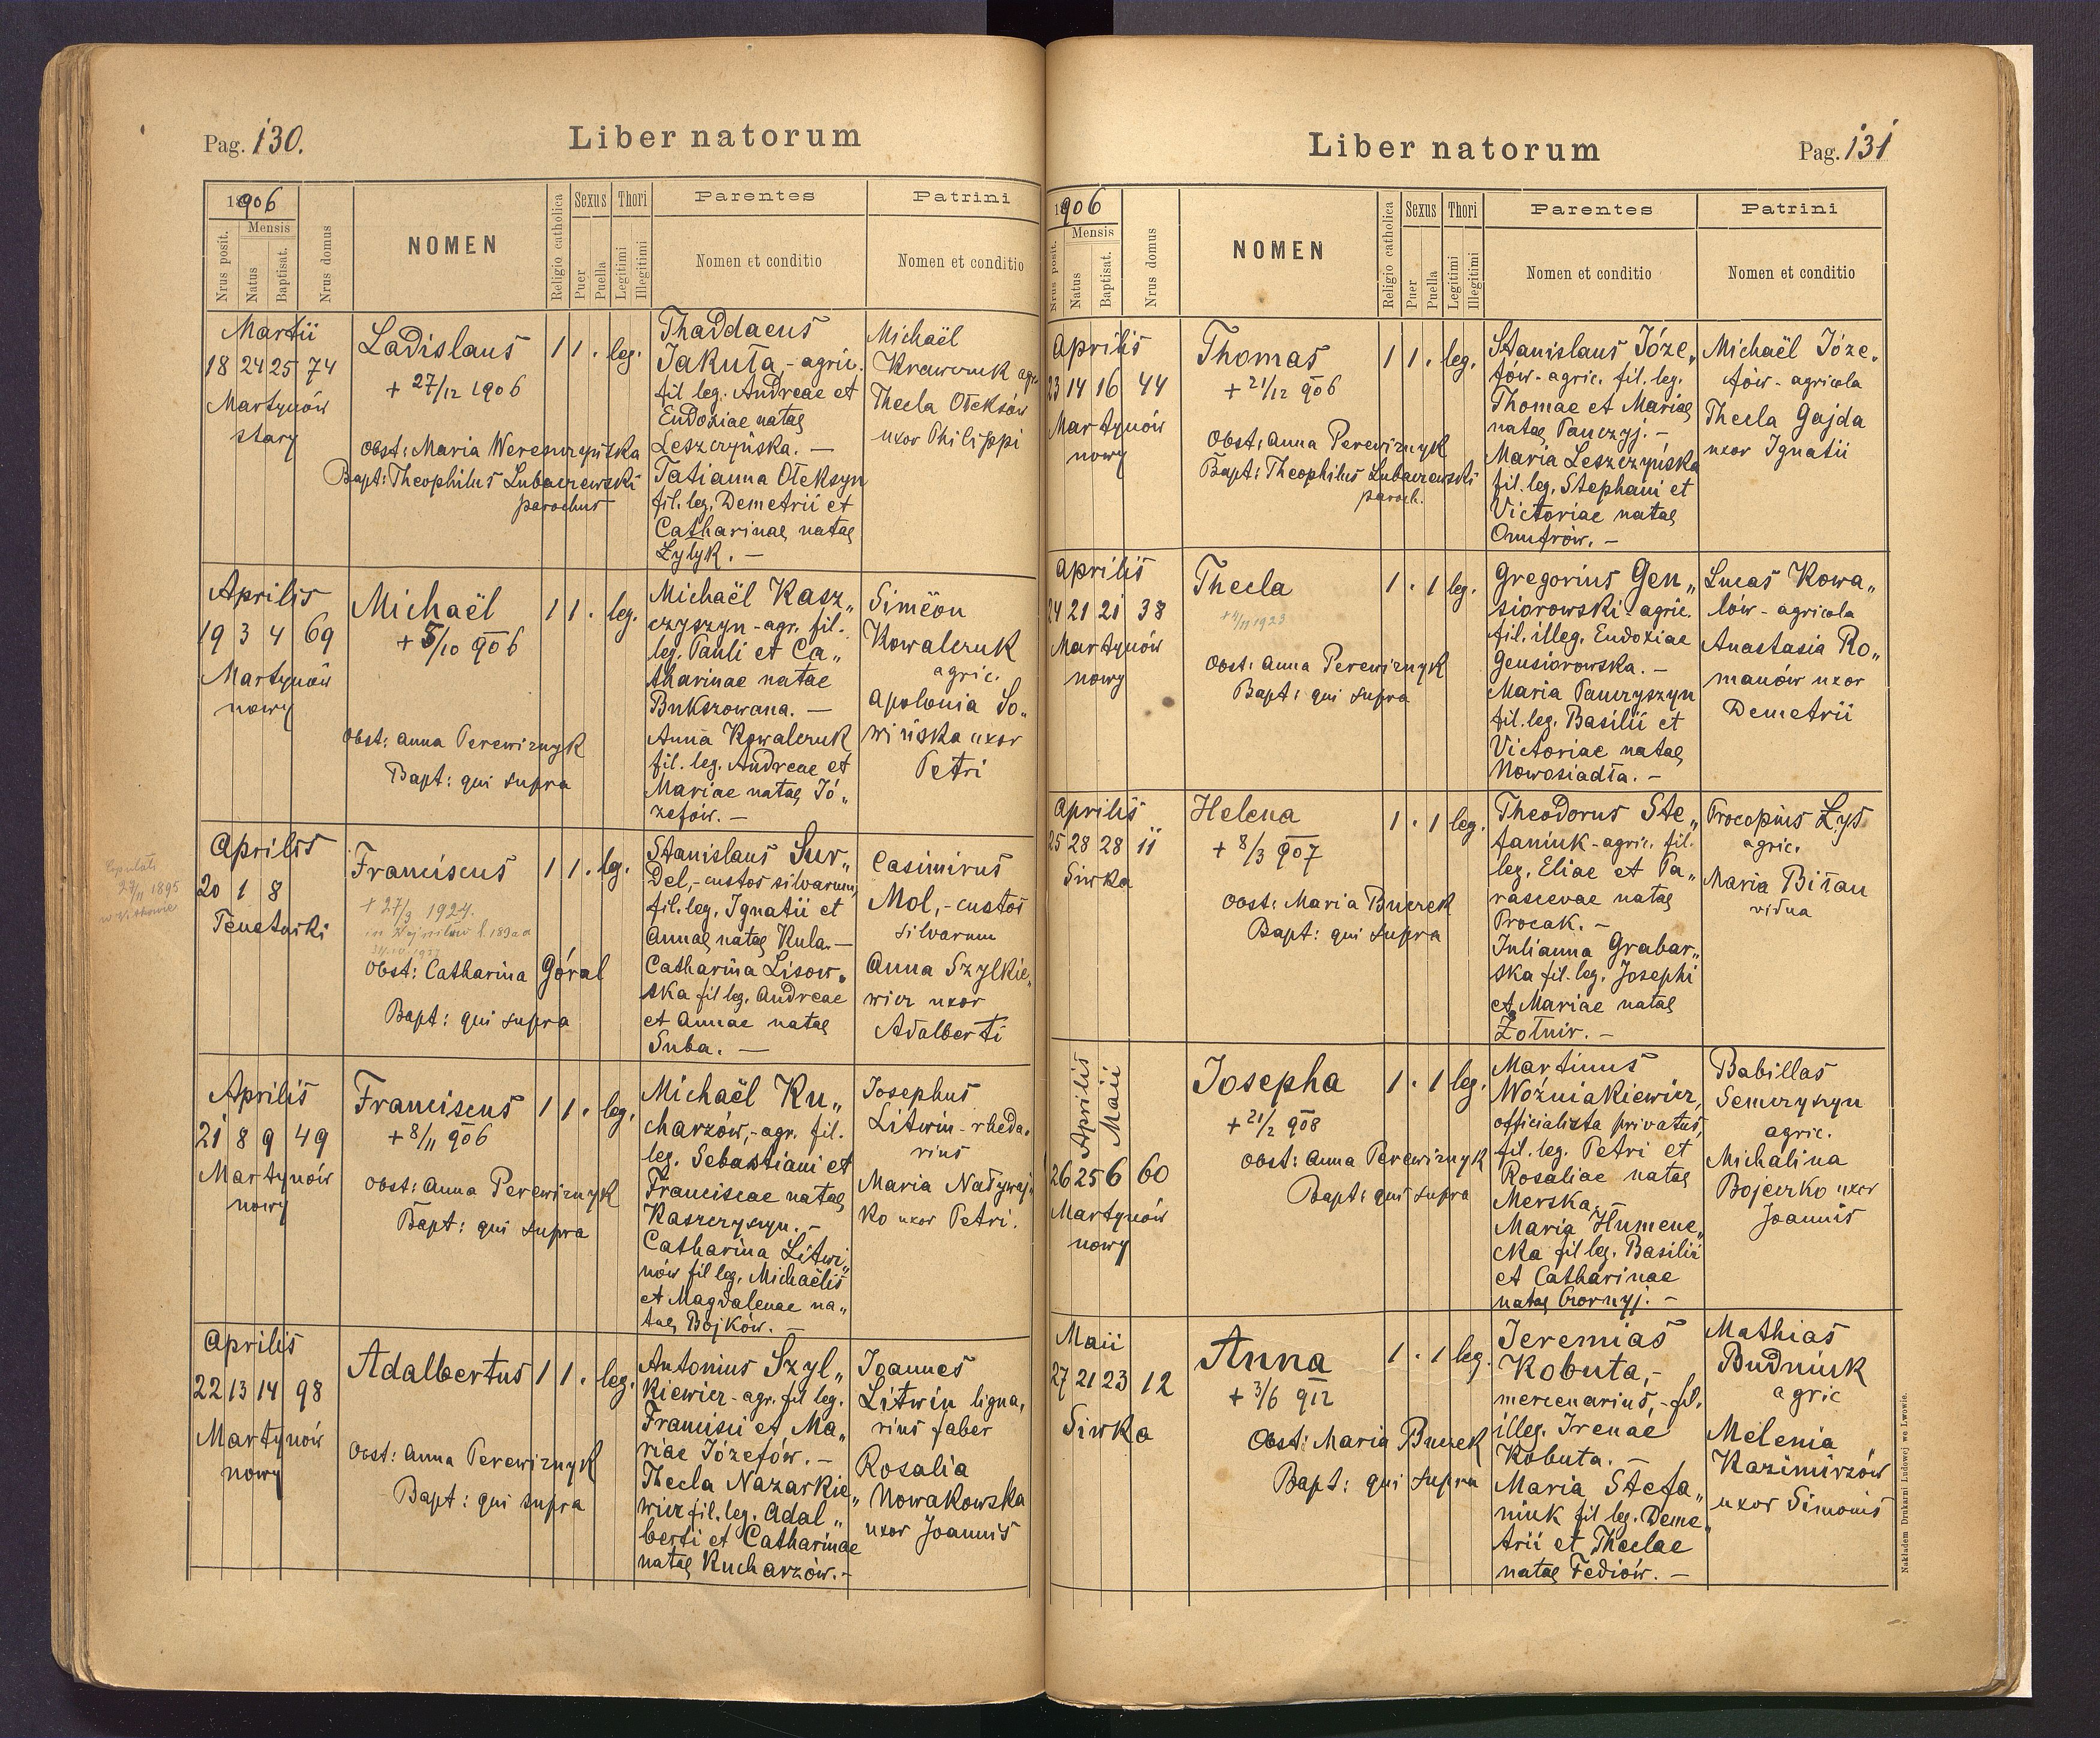 Pag. 130.
Liber natorum
1906
Mensis
Nrus posit.
Natus
Baptisat.
Nrus domus
NOMEN
Religio catholica
Sexus
Puer
Puella
Thori
Legitimi
Illegitimi
Parentes
Nomen et conditio
Patrini
Nomen et conditio
Martii
18 24 25 74
Martynów
stary
Ladislaus
+ 27/12 1906
Obst: Maria
Bapt: Theophilus Lubaczewski
parochus
1 1 . leg.
Thaddaeus
Jakuta,- agric.
fil leg. Andreae et
Eudoxiae natae
Leszczyńska. —
Tatianna Ołeksyn
fil. leg. Demetrii et
Catharinae natae
Łytyk. —
Michaël
Krawczuk agr.
Thecla Ołeksów
uxor Philippi
Aprilis
19 3 4 69
Martynów
nowy
Michaël
+ 5/10 906
Obst: Anna Perewiznyk
Bapt: qui supra
1 1 . leg.
Michaël Kasz„
czyszyn - agr. fil.
leg. Pauli et Ca„
tharinae natae
Bukszowana. —
Anna Kowalczuk
fil. leg. Andreae et
Mariae natae Jó„
zefów. —
Simëon
Kowalczuk
agric.
Apolonia So„
wińska uxor
Petri
Copulati
27/11 1895
Aprilis
20 1 8
Tenetniki
Franciscus
+ 27/3 1924.
Obst: Catharina Góral
Bapt: qui supra
1 1 . leg.
Stanislaus Sur„
del,- custos silvarum,
fil. leg. Ignatii et
Annae natae Kula. —
Catharina Lisow„
ska fil leg. Andreae
et Annae natae
Suba. —
Casimirus
Mol,- custos
silvarum
Anna Szylkie„
wicz uxor
Adalberti
Aprilis
21 8 9 49
Martynów
nowy
Franciscus
+ 8/11 906
Obst: Anna Perewiznyk
Bapt: qui supra
1 1 . leg.
Michaël Ku„
charzów,- agr. fil.
leg. Sebastiani et
Franciscae natae
Kaszczyszyn. -
Catharina Litwi„
nów fil leg. Michaëlis
et Magdalenae na„
tae Bojków. —
Josephus
Litwin - rheda„
rius
Maria Natywaj„
ko uxor Petri.
Aprilis
22 13 14 98
Martynów
nowy
Adalbertus
Obst: Anna Perewiznyk
Bapt: qui supra
1 1 . leg.
Antonius Szyl„
kiewicz - agr. fil leg.
Francisci et Ma„
riae Józefów. -
Thecla Nazarkie„
wicz fil. leg. Adal„
berti et Catharinae
natae Kucharzów. -
Joannes
Litwin ligna„
rius faber
Rosalia
Nowakowska
uxor Joannis
Liber natorum
Pag. 131
1906
Mensis
Nrus posit.
Natus
Baptisat.
Nrus domus
NOMEN
Religio catholica
Sexus
Puer
Puella
Thori
Legitimi
Illegitimi
Parentes
Nomen et conditio
Patrini
Nomen et conditio
Aprilis
23 14 16 44
Martynów
nowy
Thomas
+ 21/12 906
Obst: Anna Perewiznyk
Bapt: Theophilus Lubaczewski
paroch.
1 1 . leg.
Stanislaus Józe„
fów - agric. fil. leg.
Thomae et Mariae
natae Panczyj. -
Maria Leszczyńska
fil. leg. Stephani et
Victoriae natae
Onufrów. -
Michaël Józe„
fów - agricola
Thecla Gajda
uxor Ignatii
Aprilis
24 21 21 38
Martynów
nowy
Thecla
Obst: Anna Perewiznyk
Bapt: qui supra
1 . 1 leg.
Gregorius Gen„
siorowski - agric.
fil. illeg. Eudoxiae
Gensiorowska. -
Maria Panczyszyn
fil. leg. Basilii et
Victoriae natae
Nowosiadła. -
Lucas Kowa„
lów - agricola
Anastasia Ro„
manów uxor
Demetrii
Aprilis
25 28 28 11
Siwka
Helena
+ 8/3 907
Obst: Maria Buczek
Bapt: qui supra
1 . 1 leg.
Theodorus Ste„
faniuk - agric. fil.
leg. Eliae et Pa„
rascevae natae
Procak. -
Julianna Grabar„
ska fil. leg. Josephi
et Mariae natae
Żołnir. -
Procopius Lys
agric.
Maria Biłan
vidua
Aprilis
Maii
26 25 6 60
Martynów
nowy
Josepha
+ 21/2 908
Obst: Anna Perewiznyk
Bapt: qui supra
1 . 1 leg.
Martinus
Woźniakiewicz,
officialista privatus,
fil. leg. Petri et
Rosaliae natae
Merska, -
Maria Humene„
cka fil leg. Basilii
et Catharinae
natae Czornyj. -
Babillas
Semczyszyn
agric.
Michalina
Bojeczko uxor
Joannis
Maii
27 21 23 12
Siwka
Anna
+ 3/6 912
Obst: Maria Buczek
Bapt: qui supra
1 . 1 leg.
Jeremias
Kobuta,-
mercenarius,- fil.
illeg. Irenae
Kobuta. -
Maria Stefa„
niuk fil leg. Deme„
trii et Theclae
natae Fediów. -
Mathias
Budniuk
agric
Melenia
Kazimirzów
uxor Simonis
Nakładem Drukarni Ludowej we Lwowie.